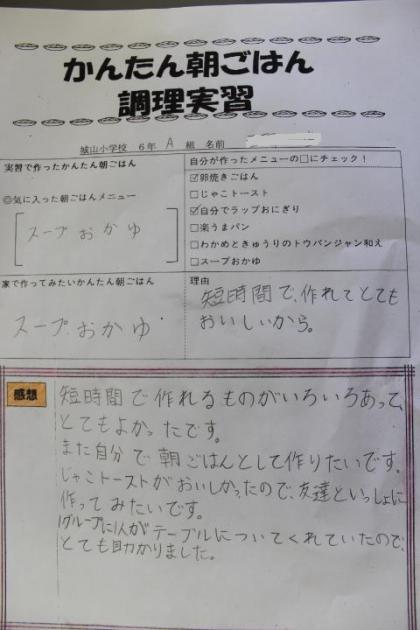 かんたん朝ごはん
調理実習
城山小学校 6年 A 組 名前
実習で作ったかんたん朝ごはん
◎気に入った朝ごはんメニュー
スープおかゆ
自分が作ったメニューの□にチェック!
☑卵焼きごはん
□じゃこトースト
☑自分でラップおにぎり
□楽うまパン
□わかめときゅうりのトウバンジャン和え
□スープおかゆ
家で作ってみたいかんたん朝ごはん
スープおかゆ
理由
短時間で、作れてとても
おいしいから。
感想
短時間で作れるものがいろいろあって、
とてもよかったです。
また自分で朝ごはんとして作りたいです。
じゃこトーストがおいしかったので、友達といっしょに
作ってみたいです。
1グループに1人がテーブルについてくれていたので、
とても助かりました。